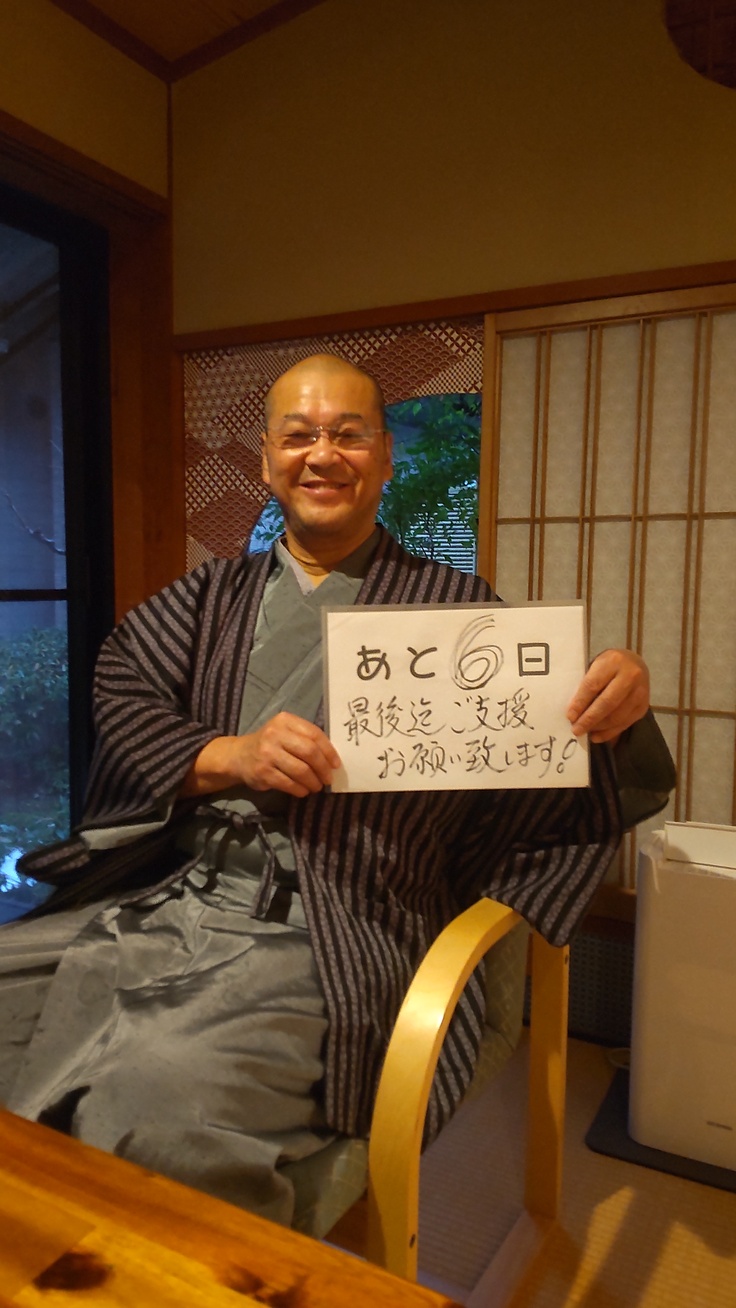 あと6日
最後迄ご支援
お願い致します!